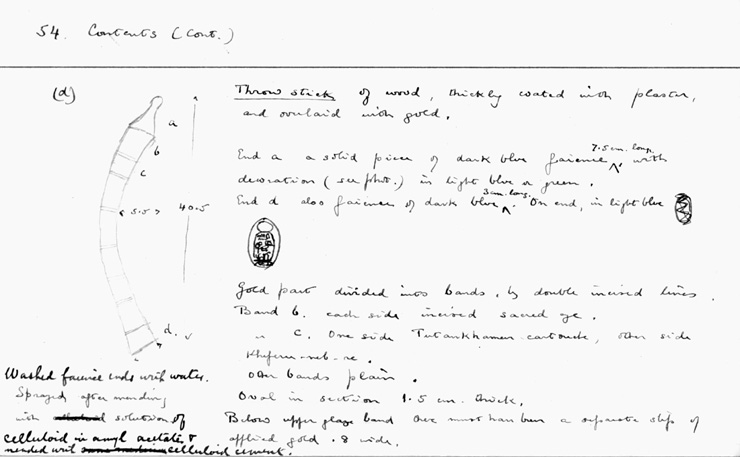 54. Contents (Cont.)
(d)
Throw stick of wood, thickly coated with plaster,
and overlaid with gold.
a
b
c
5.5
40.5
d.
7.5 cm. long.
End a a solid piece of dark blue faience ^, with
decoration (see phot.) in light blue or green.
3 cm. long.
End d also faience of dark blue ^. On end, in light blue
Gold part divided into bands, by double incised lines.
Band b. each side incised sacred eye.
" c. One side Tutankhamen cartouche, other side
Kheperu-neb-re.
Other bands plain.
Oval in section 1.5 cm. thick.
Below upper glaze band there must have been a separate strip of
applied gold .8 wide.
Washed faience ends with water.
Sprayed after mending
with solution of
celluloid in amyl acetate &
mended with celluloid cement.